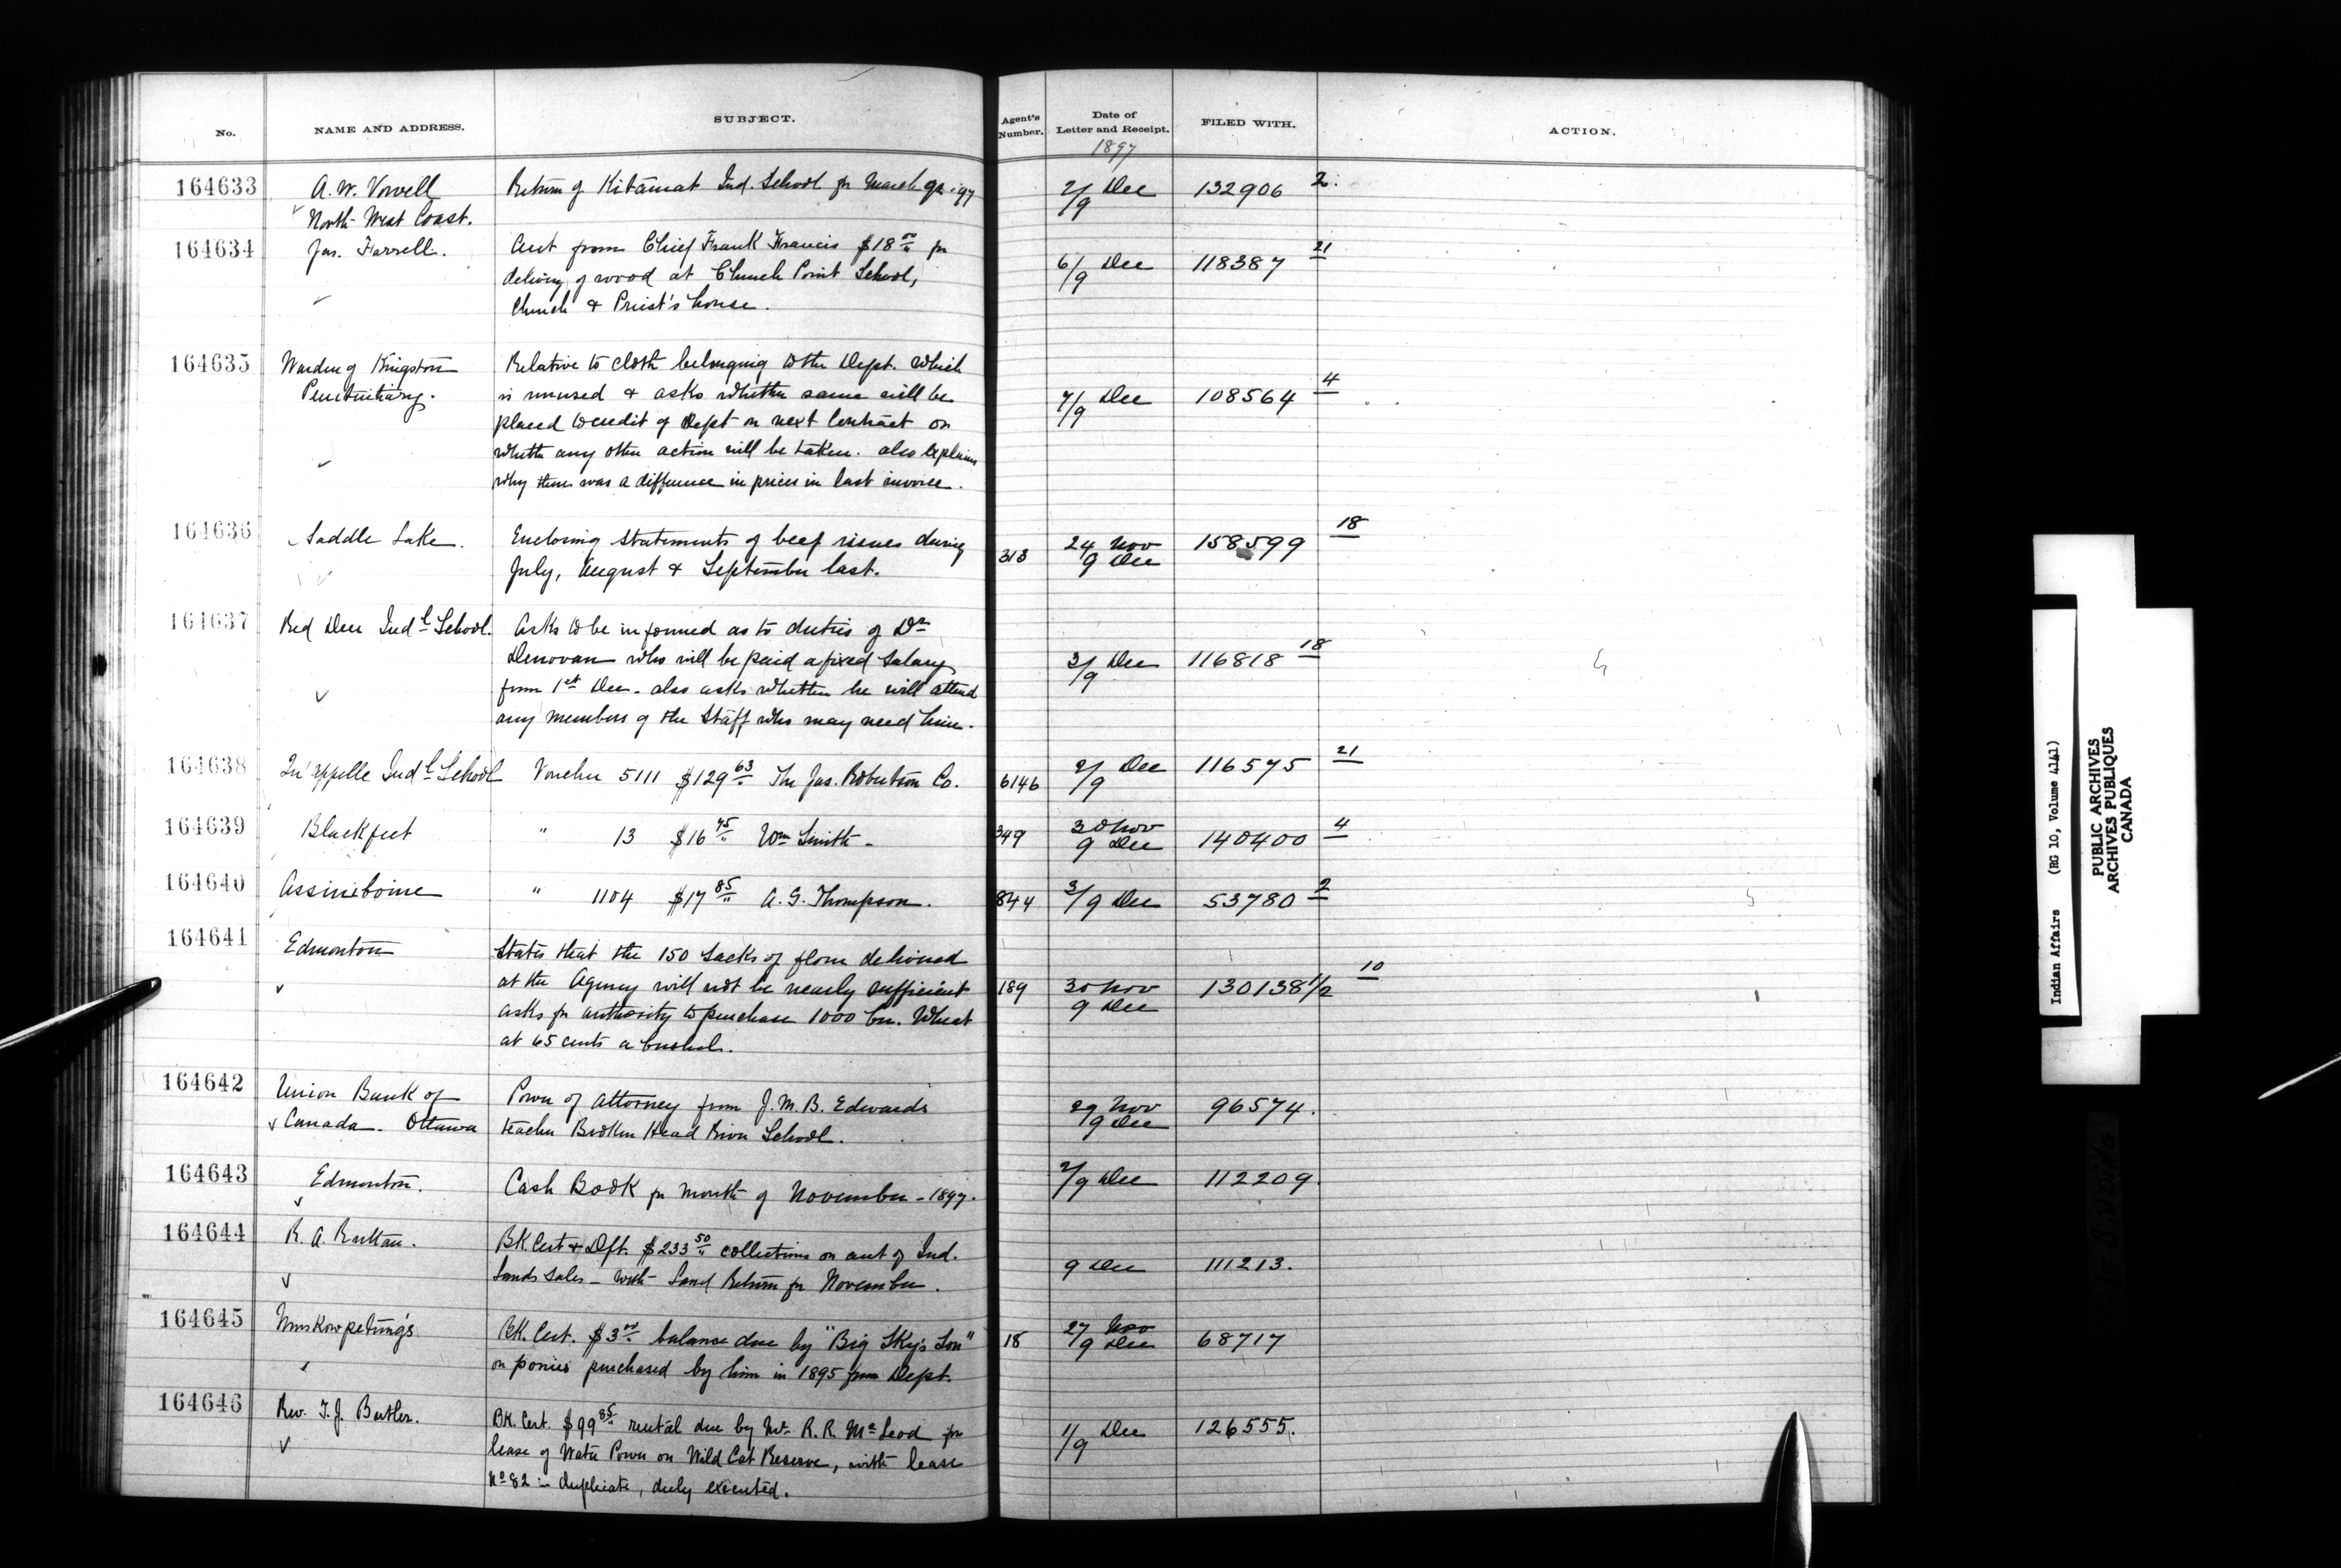 No. NAME AND ADDRESS. SUBJECT. Agent's Number. Date of Letter and Receipt. FILED WITH. ACTION.
1897
164633 A. W. Vowell Return of Kitamat Ind. School for March qr. 97 2/9 Dec 132906 2
North-West Coast.
164634 Jas. Farrell. Acct from Chief Frank Francis $18.00 for 6/9 Dec 118387 21
delivery of wood at Church Point School,
Church & Priest's house.
164635 Warden of Kingston Relative to cloth belonging to the Dept. which 7/9 Dec 108564 4
Penitentiary. is unused & asks whether same will be
placed to credit of Dept on next Contract or
whether any other action will be taken. also explains
why there was a difference in prices in last invoice.
164636 Saddle Lake. Enclosing statements of beef issues during 313 24 Nov 158599 18
July, August & September last. 9 Dec
164637 Red Deer Indl School. Asks to be informed as to duties of Dr
Denovan who will be paid a fixed salary 3/9 Dec 116818 18
from 1st Dec. also asks whether he will attend
any members of the Staff who may need him.
164638 Qu'Appelle Indl School Voucher 5111 $129.63 The Jas. Robertson Co. 6146 2/9 Dec 116575 21
164639 Blackfeet " 13 $16.45 Wm Smith - 349 30 Nov 140400 4
9 Dec
164640 Assiniboine " 1104 $17.85 A. G. Thompson. 844 3/9 Dec 53780 2
164641 Edmonton States that the 150 sacks of flour delivered
at the Agency will not be nearly sufficient 189 30 Nov 130138 1/2 10
asks for authority to purchase 1000 bu. Wheat 9 Dec
at 65 cents a bushel.
164642 Union Bank of Power of Attorney from J. M. B. Edwards 29 Nov 96574.
Canada. Ottawa teacher Broken Head River School. 9 Dec
164643 Edmonton. Cash Book for month of November - 1897. 2/9 Dec 112209
164644 R. A. Ruttan. BK. Cert & Dft. $233.50 collections on acct of Ind.
Lands sales - with Land Return for November. 9 Dec 111213.
164645 Muskowpetung's BK. Cert. $3.00 balance due by "Big Sky's Son" 18 27 Nov 68717
on ponies purchased by him in 1895 from Dept. 9 Dec
164646 Rev. T. J. Butler. BK. Cert. $99.85 rental due by Mr. R. R. McLeod for 1/9 Dec 126555.
lease of Water Power on Wild Cat Reserve, with lease
No 82 in duplicate, duly executed.
Indian Affairs (RG 10, Volume 4141)
PUBLIC ARCHIVES
ARCHIVES PUBLIQUES
CANADA